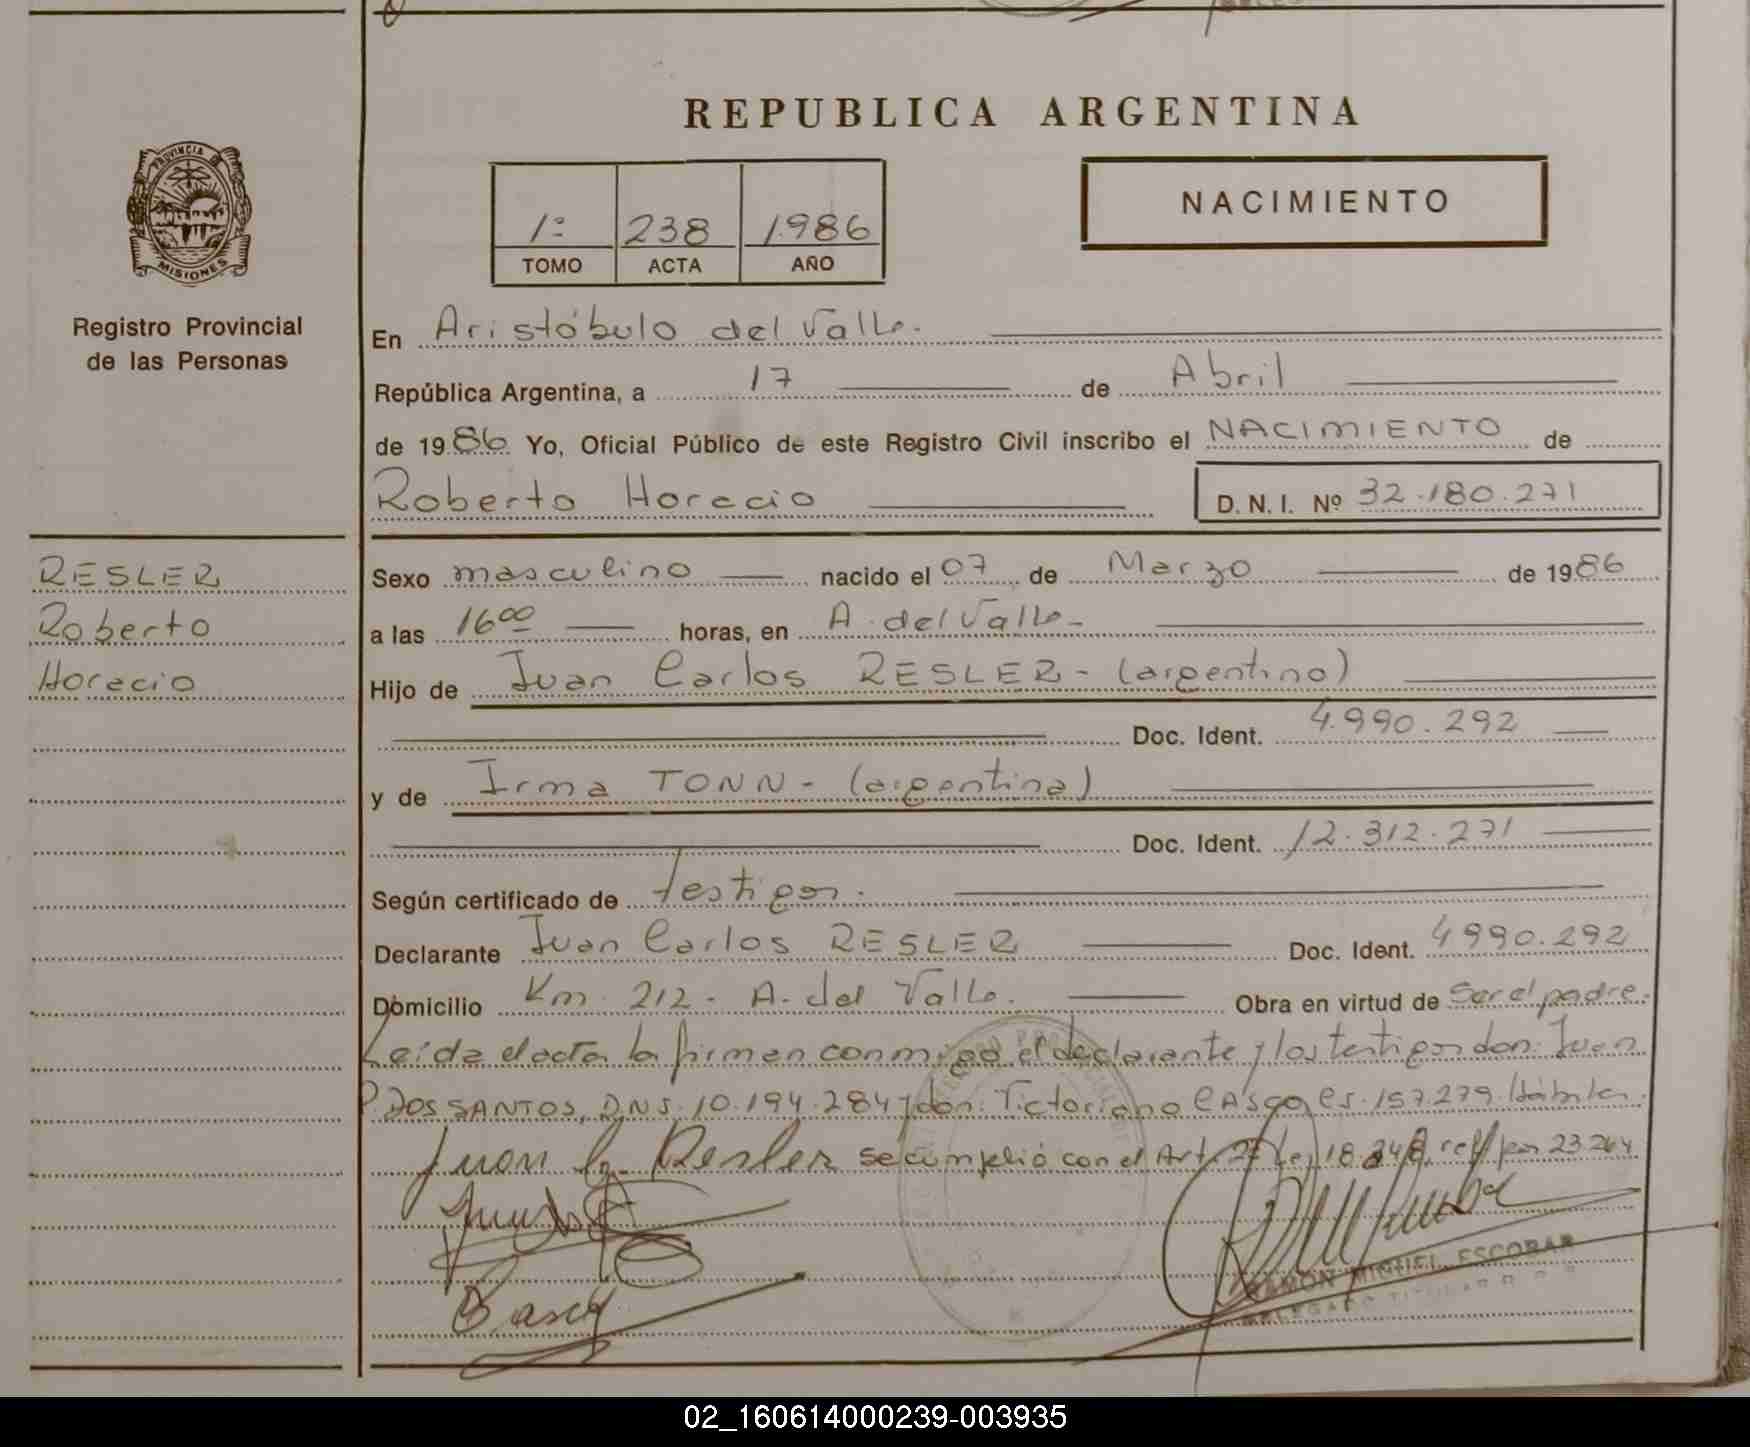 REPUBLICA ARGENTINA
PROVINCIA DE
MISIONES
Registro Provincial
de las Personas
1º 238 1986
TOMO ACTA AÑO
NACIMIENTO
En Aristóbulo del Valle.
República Argentina, a 17 de Abril
de 1986 Yo, Oficial Público de este Registro Civil inscribo el NACIMIENTO de
Roberto Horacio D. N. I. Nº 32.180.271
RESLER
Roberto
Horacio
Sexo masculino nacido el 07 de Marzo de 1986
a las 16 00 horas, en A. del Valle-
Hijo de Juan Carlos RESLER - (argentino)
Doc. Ident. 4.990.292
y de Irma TONN - (argentina)
Doc. Ident. 12.312.271
Según certificado de testigos.
Declarante Juan Carlos RESLER Doc. Ident. 4990.292
Domicilio Km. 212 - A. del Valle. Obra en virtud de Ser el padre.
Leída el acta la firman conmigo el declarante y los testigos don: Juan
DOS SANTOS, DNI. 10.194.284 y don: Victoriano 157.279. Hábiles.
Juan C. Resler se cumplió con el Art. Ley 18.248, por 23.264
RAMON MIGUEL ESCOBAR
DELEGADO TITULAR
02_160614000239-003935